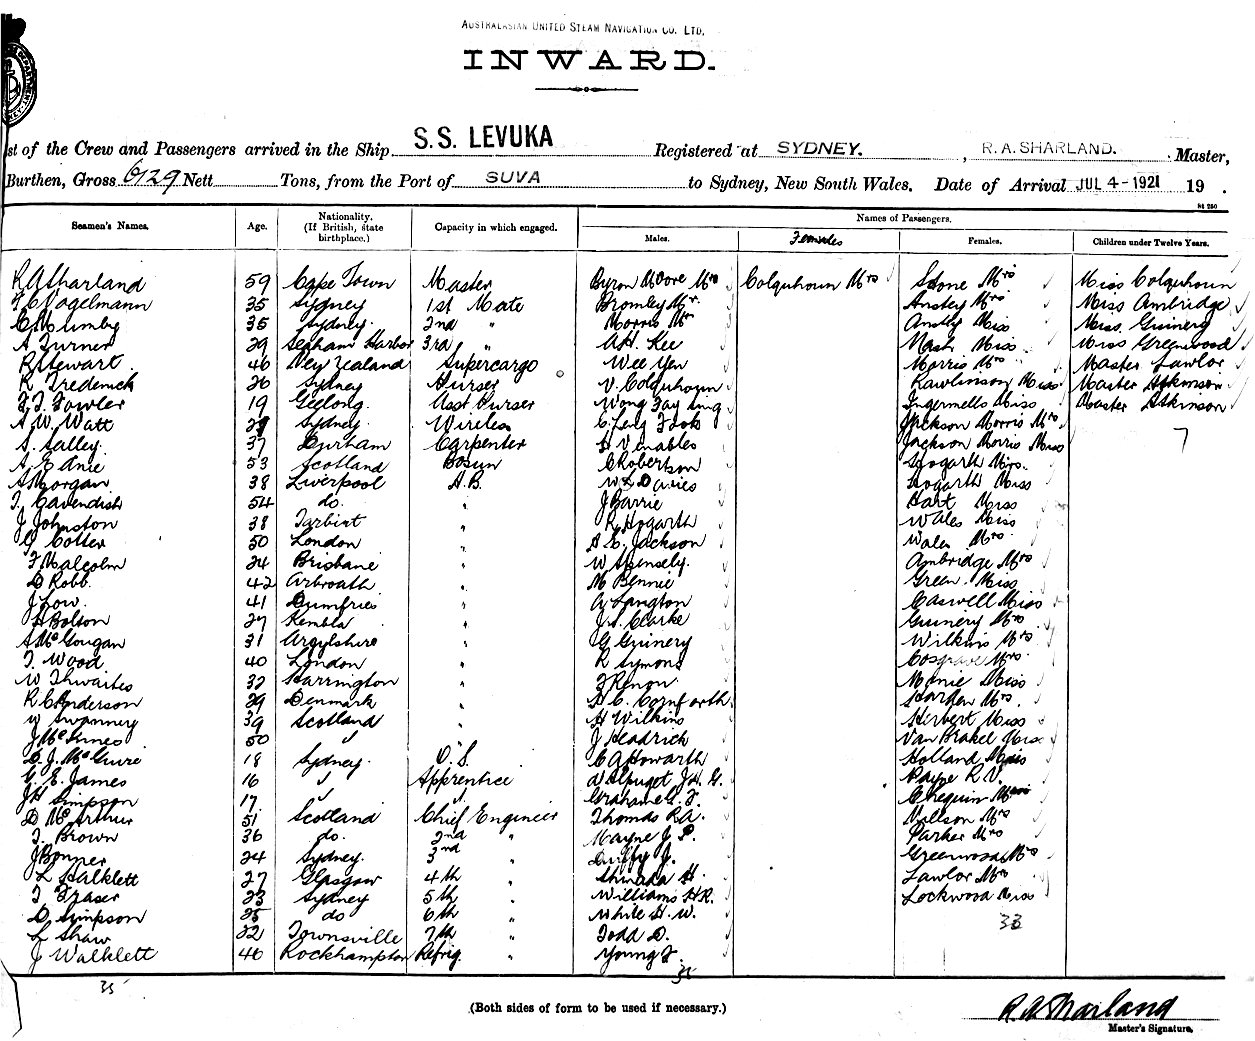 AUSTRALASIAN UNITED STEAM NAVIGATION CO. LTD.
INWARD.
st of the Crew and Passengers arrived in the Ship S.S. LEVUKA Registered at SYDNEY. , R.A. SHARLAND. Master,
Burthen, Gross 6129 Nett Tons, from the Port of SUVA to Sydney, New South Wales, Date of Arrival JUL 4-1921 19 .
Names of Passengers.
Seamen's Names. Age. Nationality. (If British, state birthplace.) Capacity in which engaged. Males. Females Females. Children under Twelve Years.
R A Sharland 59 Cape Town Master Byron Moore Mrs Colquhoun Mrs Stone Mrs Miss Colquhoun
F C Vogelmann 35 Sydney 1st Mate Bromley Mr. Anstey Mrs Miss Ambridge
C Mumby 35 Sydney. 2nd " Morris Mr Anstey Miss Miss Guinery
A Turner 29 Seaham Harbor 3rd " A H. Lee Nash Miss Miss Greenwood
R Stewart 46 New Zealand Supercargo Wee Yen Morris Mrs Master Lawlor
R Frederick 26 Sydney Purser V. Colquhoun Rawlinson Miss Master Atkinson
F. J. Fowler 19 Geelong. Asst Purser Wong Fay Sing Ingermells Miss Master Atkinson
A. W. Watt Sydney. Wireless C Leng Jackson Morris Mrs 7
S. Salley. 37 Durham Carpenter H Venables Jackson Morris Miss
53 Scotland Bosun C Robertson Hogarth Mrs.
A Morgan 38 Liverpool A.B. W L Davies Hogarth Miss
J. Cavendish 54 do. " J Barrie Hart Miss
J Johnston 38 Tarbert " R Hogarth Wales Miss
G Cotter 50 London " A. E. Jackson Wales Mrs
F Malcolm 24 Brisbane " W Spensely. Ambridge Mrs
D Robb. 42 Arbroath " M Bennie Green. Miss
J Low. 41 Dumfries " A Langton Caswell Miss
H Bolton 27 Kembla " J. S. Clarke Guinery Mrs
A McGougan 31 Argylshire " G Guinery Wilkins Mrs
J. Wood 40 London " R Symons Cosgrave Mrs
W Thwaites 32 Harrington " F Renon Miss
R C Anderson 29 Denmark " H. C. Cornforth Harden Mrs
W Swanney 39 Scotland " H Wilkins Herbert Miss
J McInnes 50 " J Headrick Van Brakel Miss
D. J. McGuire 18 Sydney. O.S. C A Howarth Holland Miss
G. E. James 16 " Apprentice d'Alpuget J. H. G. Payne R V.
J H Simpson 17 " " Graham G. F. Chequin
D McArthur 51 Scotland Chief Engineer Thomas R A. Willson Mrs
J. Brown 36 do. 2nd " Mayne J P. Parker Mrs
J Bonner 24 Sydney. 3rd Duffy J. Greenwood Mrs
L Halklett 27 Glasgow 4th " Shinata H. Lawlor Mrs
J Fraser 23 Sydney 5th " Williams H R. Lockwood Miss
D Simpson 25 do 6th " White H. W. 33
L Shaw 22 Townsville 7th " Todd D.
J Walklett 46 Rockhampton Refrig. " Young F.
35 35
(Both sides of form to be used if necessary.)
R A Sharland
Master's Signature.